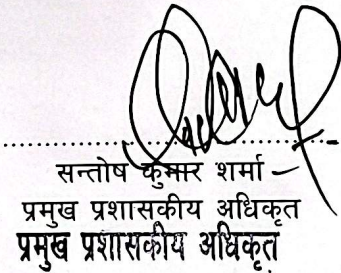 सन्तोष कुमार शर्मा
प्रमुख प्रशासकीय अधिकृत
प्रमुख प्रशासकीय अधिकृत